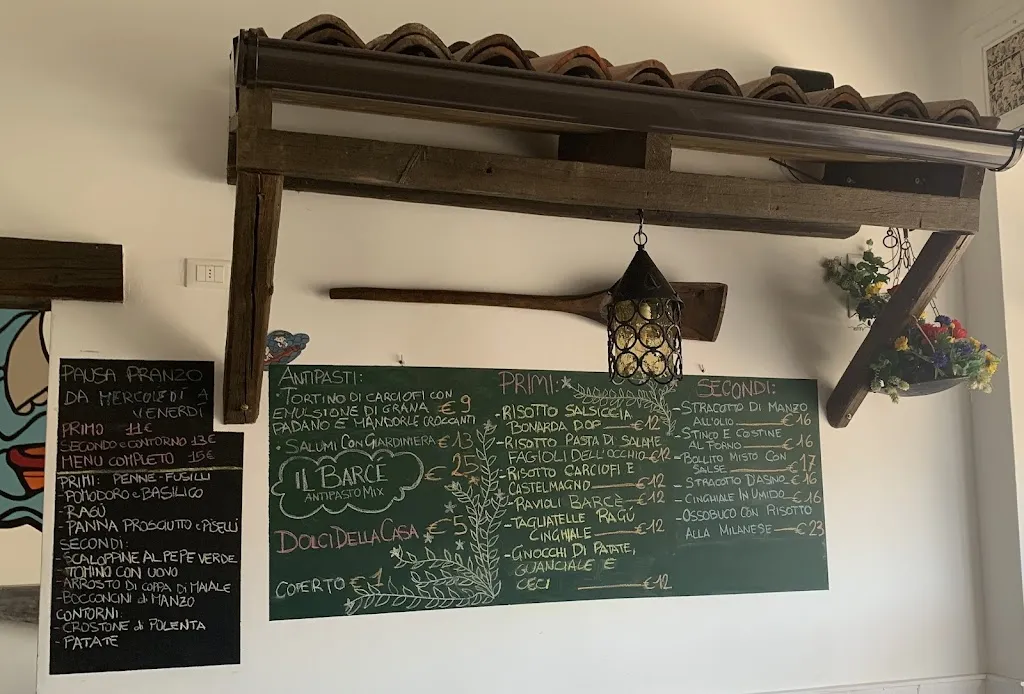 PAUSA PRANZO
DA MERCOLEDÌ A
VENERDI
PRIMO 11€
SECONDO e CONTORNO 13€
MENU COMPLETO 15€
PRIMI: PENNE-FUSILLI
- POMODORO e BASILICO
- RAGÚ
- PANNA PROSCIUTTO e PISELLI
SECONDI:
- SCALOPPINE AL PEPE VERDE
- TOMINO CON UOVO
- ARROSTO DI COPPA DI MAIALE
- BOCCONCINI di MANZO
CONTORNI:
- CROSTONE di POLENTA
- PATATE
ANTIPASTI:
• TORTINO DI CARCIOFI CON
EMULSIONE DI GRANA € 9
PADANO E MANDORLE CROCCANTI
• SALUMI CON GIARDINIERA € 13
IL BARCÈ € 25
ANTIPASTO MIX
DOLCI DELLA CASA € 5
COPERTO € 1
PRIMI:
- RISOTTO SALSICCIA
BONARDA DOP — € 12
- RISOTTO PASTA DI SALAME
FAGIOLI DELL'OCCHIO € 12
- RISOTTO CARCIOFI E
CASTELMAGNO — € 12
- RAVIOLI BARCÈ — € 12
- TAGLIATELLE RAGÚ
CINGHIALE — € 12
- GNOCCHI DI PATATE,
GUANCIALE E
CECI — € 12
SECONDI:
- STRACOTTO DI MANZO
ALL'OLIO — € 16
- STINCO E COSTINE
AL FORNO — € 16
- BOLLITO MISTO CON
SALSE — € 17
- STRACOTTO D'ASINO — € 16
- CINGHIALE IN UMIDO — € 16
- OSSOBUCO CON RISOTTO
ALLA MILANESE — € 23